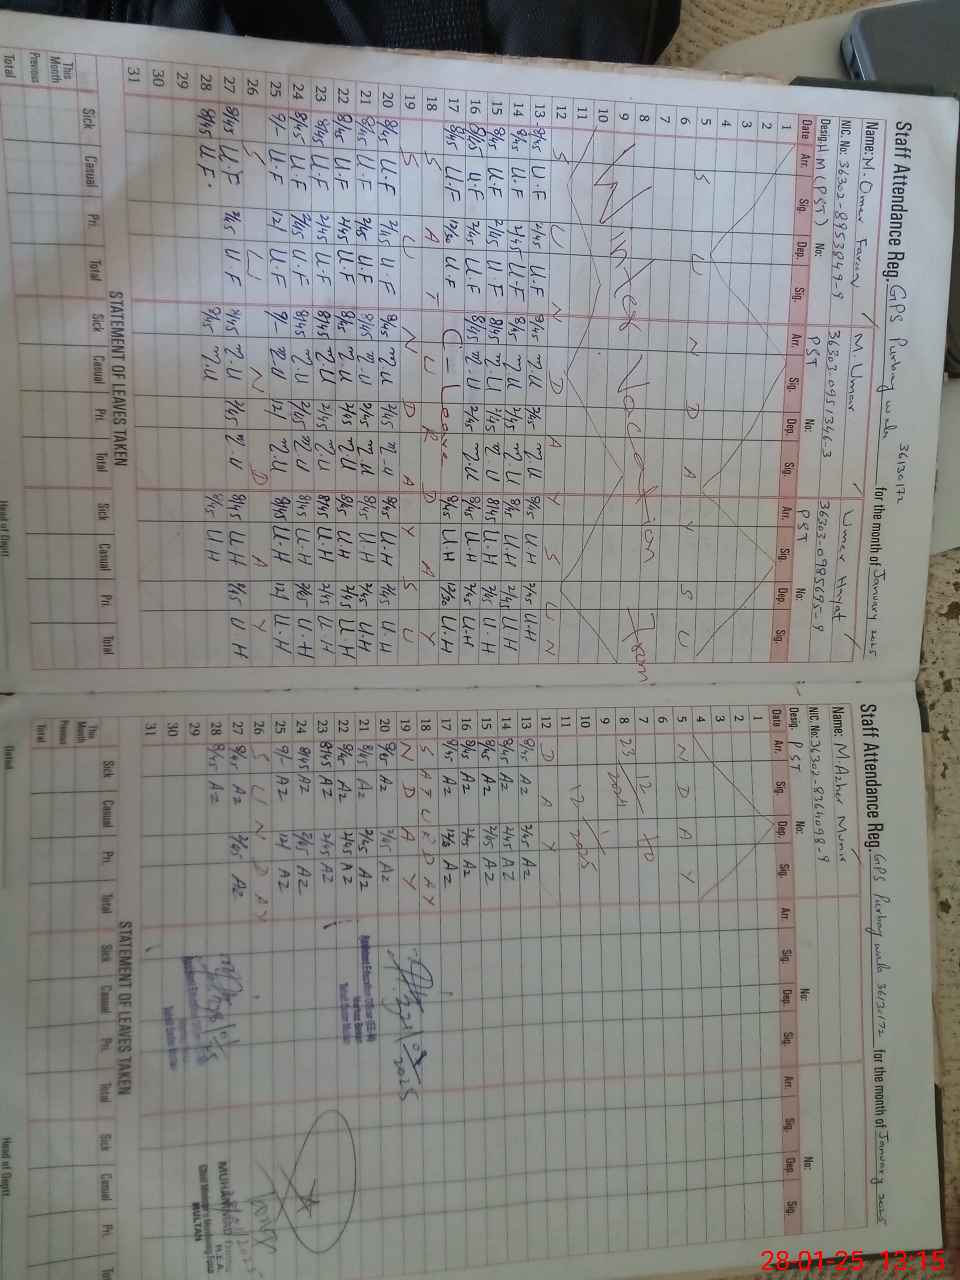 Staff Attendance Reg. GPS Purbay wala 36130172 for the month of January 2025
Name: M. Omer Farooq M. Umar Umer Hayat
NIC. No: 36302-8953849-9 36303-0951346-3 36303-0985695-9
Desig: H M (PST) No: PST No: PST No:
Date Arr. Sig. Dep. Sig. Arr. Sig. Dep. Sig. Arr. Sig. Dep. Sig.
1
2
3
4
5 S U N D A Y S U
6
7
8 Winter Vacation From
9
10
11
12 S U N D A Y S U N
13 8/45 U.F 2/45 U.F 8/45 M.U 2/45 M.U 8/45 U.H 2/45 U.H
14 8/45 U.F 2/45 U.F 8/45 M.U 2/45 M.U 8/45 U.H 2/45 U.H
15 8/45 U.F 2/45 U.F 8/45 M.U 2/45 M.U 8/45 U.H 2/45 U.H
16 8/45 U.F 2/45 U.F 8/45 M.U 2/45 M.U 8/45 U.H 2/45 U.H
17 8/45 U.F 12/30 U.F C-Leave 8/45 U.H 12/30 U.H
18 S A T U R D A Y
19 S U N D A Y S U
20 8/45 U.F 2/45 U.F 8/45 M.U 2/45 M.U 8/45 U.H 2/45 U.H
21 8/45 U.F 2/45 U.F 8/45 M.U 2/45 M.U 8/45 U.H 2/45 U.H
22 8/45 U.F 2/45 U.F 8/45 M.U 2/45 M.U 8/45 U.H 2/45 U.H
23 8/45 U.F 2/45 U.F 8/45 M.U 2/45 M.U 8/45 U.H 2/45 U.H
24 8/45 U.F 2/45 U.F 8/45 M.U 2/45 M.U 8/45 U.H 2/45 U.H
25 9/- U.F 12/ U.F 9/- M.U 12/ M.U 8/45 U.H 12/ U.H
26 S U N D A Y
27 8/45 U.F 2/45 U.F 8/45 M.U 2/45 M.U 8/45 U.H 2/45 U.H
28 8/45 U.F. 8/45 M.U 8/45 U.H
29
30
31
STATEMENT OF LEAVES TAKEN
Sick Casual Pri. Total Sick Casual Pri. Total Sick Casual Pri. Total
This Month
Previous
Total
Head of Deptt.
Staff Attendance Reg. GPS Purbay wala 36130172 for the month of January 2025
Name: M. Azher Munir
NIC. No: 36302-8364098-9
Desig: PST No: No: No:
Date Arr. Sig. Dep. Sig. Arr. Sig. Dep. Sig. Arr. Sig. Dep. Sig.
1
2
3
4
5 N D A Y
6
7
8 23/12/2024 to
9
10
11
12 D A Y
13 8/45 AZ 2/45 AZ
14 8/45 AZ 2/45 AZ
15 8/45 AZ 2/45 AZ
16 8/45 AZ 2/45 AZ
17 8/45 AZ 12/30 AZ
18 S A T U R D A Y
19 N D A Y
20 8/45 AZ 2/45 AZ
21 8/45 AZ 2/45 AZ
22 8/45 AZ 2/45 AZ
23 8/45 AZ 2/45 AZ
24 8/45 AZ 2/45 AZ
25 9/- AZ 12/ AZ
26 S U N D A Y
27 8/45 AZ 2/45 AZ
28 8/45 AZ
29
30
31
Assistant Education Officer
MUHAMMAD
MULTAN
STATEMENT OF LEAVES TAKEN
Sick Casual Pri. Total Sick Casual Pri. Total Sick Casual Pri.
This Month
Previous
Total
Head of Deptt.
28-01-25 13:15